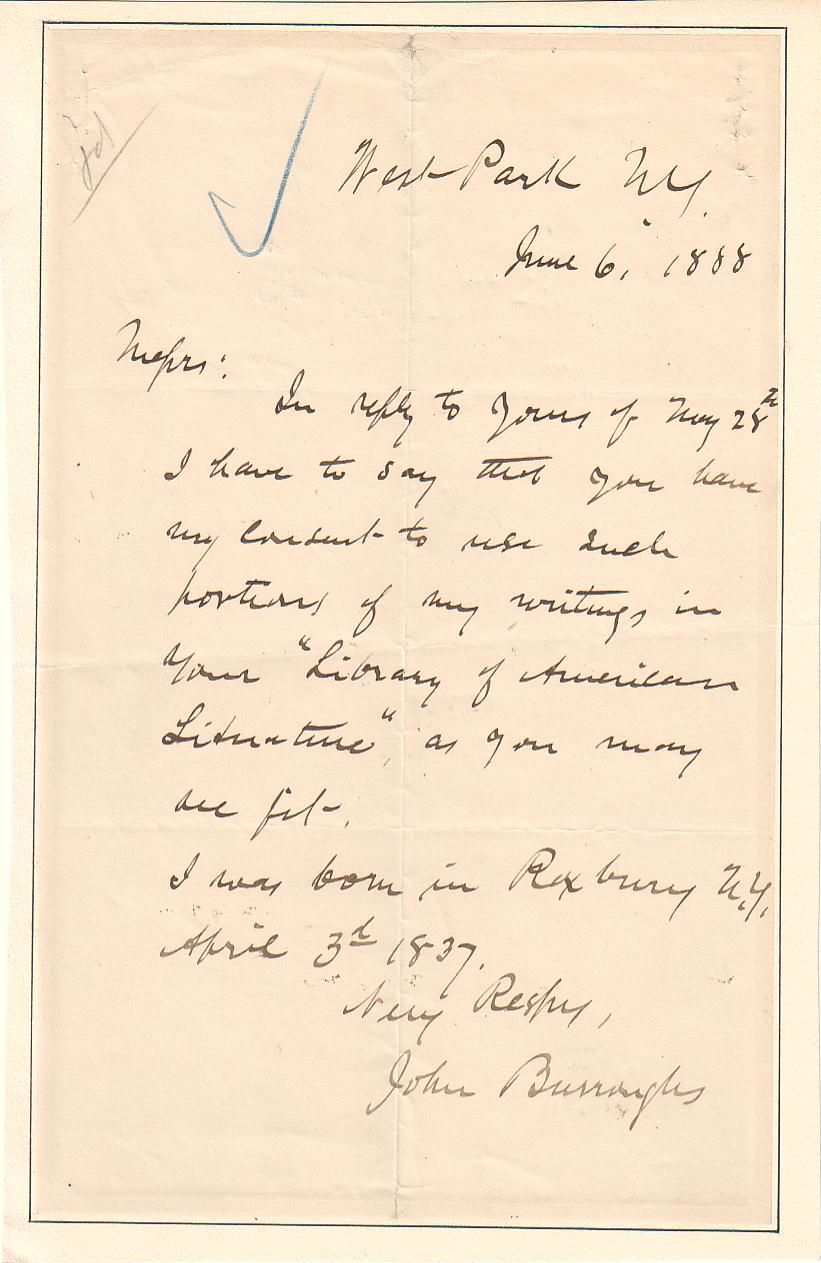 West Park N.Y.
June 6, 1888
Messrs:
In reply to yours of May 28th
I have to say that you have
my consent to use such
portions of my writings in
your "Library of American
Literature", as you may
see fit.
I was born in Roxbury N.Y.
April 3d 1837.
Very Respy,
John Burroughs